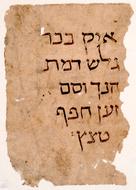 איק בכר
גלש דמת
הנך וסם
זען חפף
טצץ